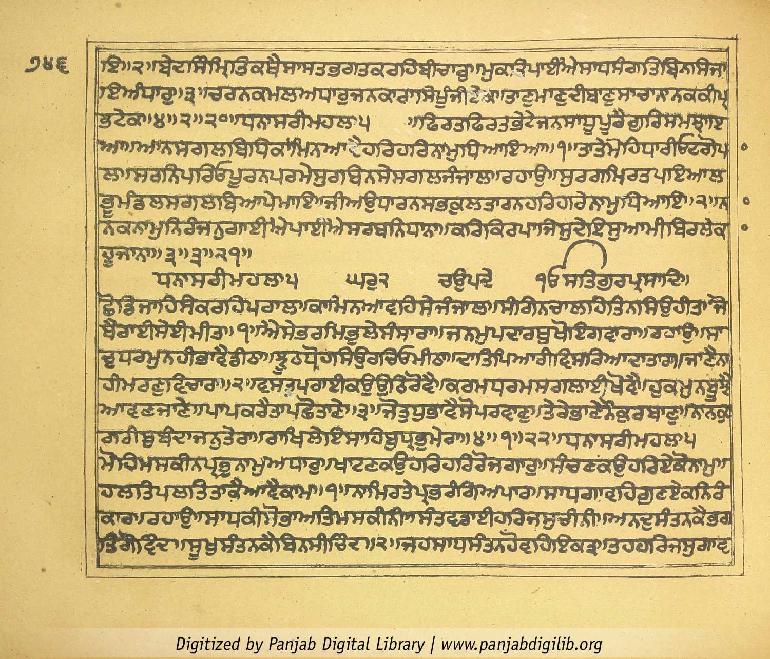 ੭੪੬
ਇ॥੨॥ਬੇਦਸਿੰਮ੍ਰਿਤਿਕਥੈਸਾਸਤਭਗਤਕਰਹਿਬੀਚਾਰੁ॥ਮੁਕਤਿਪਾਈਐਸਾਧਸੰਗਤਿਬਿਨਸਿਜਾ
ਇਅੰਧਾਰੁ॥੩॥ਚਰਨਕਮਲਅਧਾਰੁਜਨਕਾਰਾਸਿਪੂੰਜੀਏਕ॥ਤਾਣੁਮਾਣੁਦੀਬਾਣੁਸਾਚਾਨਾਨਕਕੀਪ੍ਰ
ਭਟੇਕ॥੪॥੨॥੨੦॥ਧਨਾਸਰੀਮਹਲਾ੫ ॥ਫਿਰਤਫਿਰਤਭੇਟੇਜਨਸਾਧੂਪੂਰੈਗੁਰਿਸਮਝਾਇ
ਆ॥ਆਨਸਗਲਬਿਧਿਕਾਂਮਿਨਆਵੈਹਰਿਹਰਿਨਾਮੁਧਿਆਇਆ॥੧॥ਤਾਤੇਮੋਹਿਧਾਰੀਓਟਗੋਪਾ
ਲ॥ਸਰਨਿਪਰਿਓਪੂਰਨਪਰਮੇਸੁਰਬਿਨਸੇਸਗਲਜੰਜਾਲ॥ਰਹਾਉ॥ਸੁਰਗਮਿਰਤਪਇਆਲ
ਭੂਮੰਡਲਸਗਲਬਿਆਪੇਮਾਇ॥ਜੀਅਉਧਾਰਨਸਭਕੁਲਤਾਰਨਹਰਿਹਰਿਨਾਮੁਧਿਆਇ॥੨॥ਨਾ
ਨਕਨਾਮੁਨਿਰੰਜਨੁਗਾਈਐਪਾਈਐਸਰਬਨਿਧਾਨਾ॥ਕਰਿਕਿਰਪਾਜਿਸੁਦੇਇਸੁਆਮੀਬਿਰਲੇਕਾ
ਹੂਜਾਨਾ॥੩॥੩॥੨੧॥
ਧਨਾਸਰੀਮਹਲਾ੫ ਘਰੁ੨ ਚਉਪਦੇ ੧ਓਸਤਿਗੁਰਪ੍ਰਸਾਦਿ॥
ਛੋਡਿਜਾਹਿਸੇਕਰਹਿਪਰਾਲ॥ਕਾਮਿਨਆਵਹਿਸੇਜੰਜਾਲ॥ਸੰਗਿਨਚਾਲਹਿਤਿਨਸਿਉਹੀਤ॥ਜੋ
ਬੈਰਾਈਸੇਈਮੀਤ॥੧॥ਐਸੇਭਰਮਿਭੁਲੇਸੰਸਾਰਾ॥ਜਨਮੁਪਦਾਰਥੁਖੋਇਗਵਾਰਾ॥ਰਹਾਉ॥ਸਾ
ਚੁਧਰਮੁਨਹੀਭਾਵੈਡੀਠਾ॥ਝੂਠਧੋਹਸਿਉਰਚਿਓਮੀਠਾ॥ਦਾਤਿਪਿਆਰੀਵਿਸਰਿਆਦਾਤਾਰਾ॥ਜਾਣੈਨਾ
ਹੀਮਰਣੁਵਿਚਾਰਾ॥੨॥ਵਸਤੁਪਰਾਈਕਉਉਠਿਰੋਵੈ॥ਕਰਮਧਰਮਸਗਲਾਈਖੋਵੈ॥ਹੁਕਮੁਨਬੂਝੈ
ਆਵਣਜਾਣੇ॥ਪਾਪਕਰੈਤਾਪਛੋਤਾਣੇ॥੩॥ਜੋਤੁਧੁਭਾਵੈਸੋਪਰਵਾਣੁ॥ਤੇਰੇਭਾਣੇਨੋਕੁਰਬਾਣੁ॥ਨਾਨਕੁ
ਗਰੀਬੁਬੰਦਾਜਨੁਤੇਰਾ॥ਰਾਖਿਲੇਇਸਾਹਿਬੁਪ੍ਰਭੁਮੇਰਾ॥੪॥੧॥੨੨॥ਧਨਾਸਰੀਮਹਲਾ੫
ਮੋਹਿਮਸਕੀਨਪ੍ਰਭੁਨਾਮੁਅਧਾਰੁ॥ਖਾਟਣਕਉਹਰਿਹਰਿਰੋਜਗਾਰੁ॥ਸੰਚਣਕਉਹਰਿਏਕੋਨਾਮੁ॥
ਹਲਤਿਪਲਤਿਤਾਕੈਆਵੈਕਾਮ॥੧॥ਨਾਮਿਰਤੇਪ੍ਰਭਰੰਗਿਅਪਾਰ॥ਸਾਧਗਾਵਹਿਗੁਣਏਕਨਿਰੰ
ਕਾਰ॥ਰਹਾਉ॥ਸਾਧਕੀਸੋਭਾਅਤਿਮਸਕੀਨੀ॥ਸੰਤਵਡਾਈਹਰਿਜਸੁਚੀਨੀ॥ਅਨਦੁਸੰਤਨਕੈਭਗ
ਤਿਗੋਵਿੰਦ॥ਸੂਖੁਸੰਤਨਕੈਬਿਨਸੀਚਿੰਦ॥੨॥ਜਹਸਾਧਸੰਤਨਹੋਵਹਿਇਕਤ੍ਰ॥ਤਹਹਰਿਜਸੁਗਾਵ
Digitized by Panjab Digital Library | www.panjabdigilib.org